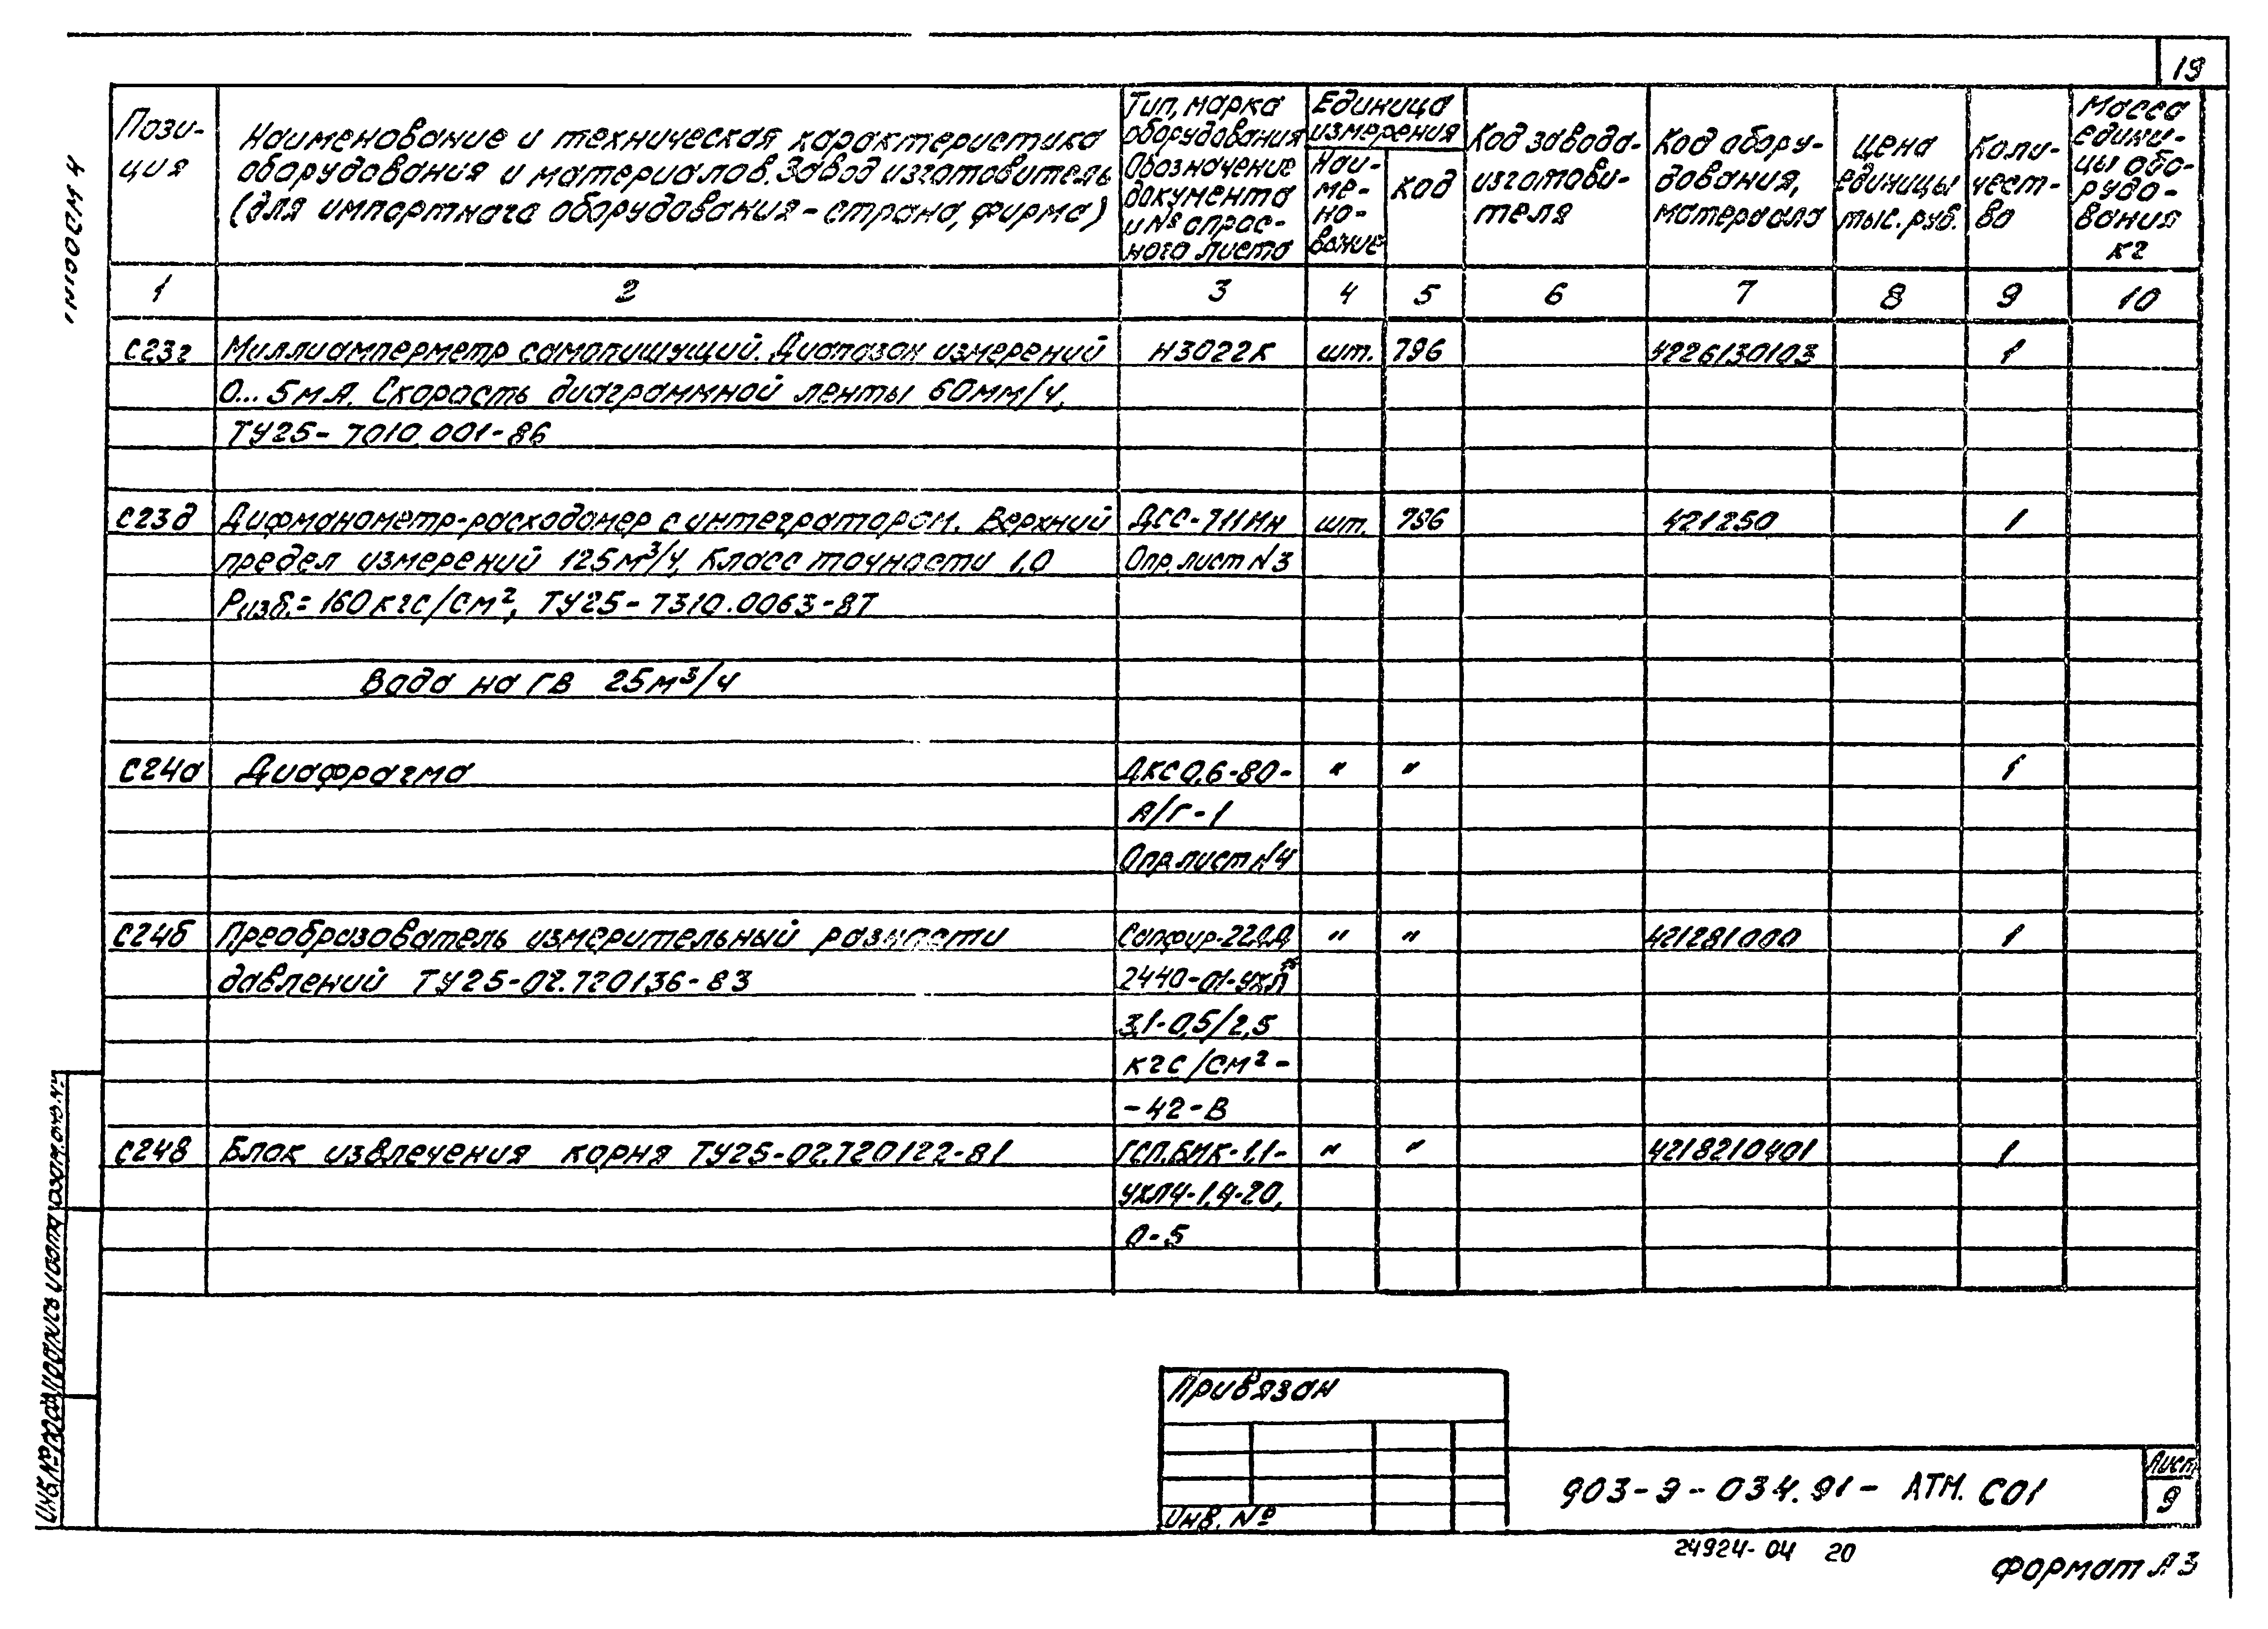 19
Пози-
ция
Наименование и техническая характеристика
оборудования и материалов. Завод изготовитель
(для импортного оборудования - страна, фирма)
Тип, марка
оборудования
Обозначение
документа
и № опрос-
ного листа
Единица
измерения
Наи-
ме-
но-
вание
код
Код завода-
изготови-
теля
Код обору-
дования,
материала
Цена
единицы
тыс. руб.
Коли-
чест-
во
Масса
едини-
цы обо-
рудо-
вания
кг
1 2 3 4 5 6 7 8 9 10
С23г Миллиамперметр самопишущий. Диапазон измерений Н3022К шт. 796 4226130103 1
0...5мА. Скорость диаграммной ленты 60мм/ч,
ТУ25-7010.001-86
С23д Дифманометр-расходомер с интегратором. Верхний ДСС-711Ин шт. 796 421250 1
предел измерений 125м³/ч, Класс точности 1,0 Опр.лист N3
Ризб.=160кгс/см², ТУ25-7310.0063-87
Вода на ГВ 25м³/ч
С24а Диафрагма ДКС0,6-80- " " 1
А/Г-1
Опр.лист N4
С24б Преобразователь измерительный разности Сапфир-22ДД " " 421281000 1
давлений ТУ25-02.720136-83 2440-01-УХЛ
3,1-0,5/2,5
кгс/см²-
-42-В
С24в Блок извлечения корня ТУ25-02.720122-81 ГСП.БИК-1.1- " " 4218210401 1
УХЛ4-1,4-20,
0-5
Альбом 4
Инв.№ подл. Подпись и дата Взам.инв.№
Привязан
Инв. №
903-9-034.91- АТМ. СО1
Лист
9
24924-04 20
Формат А3